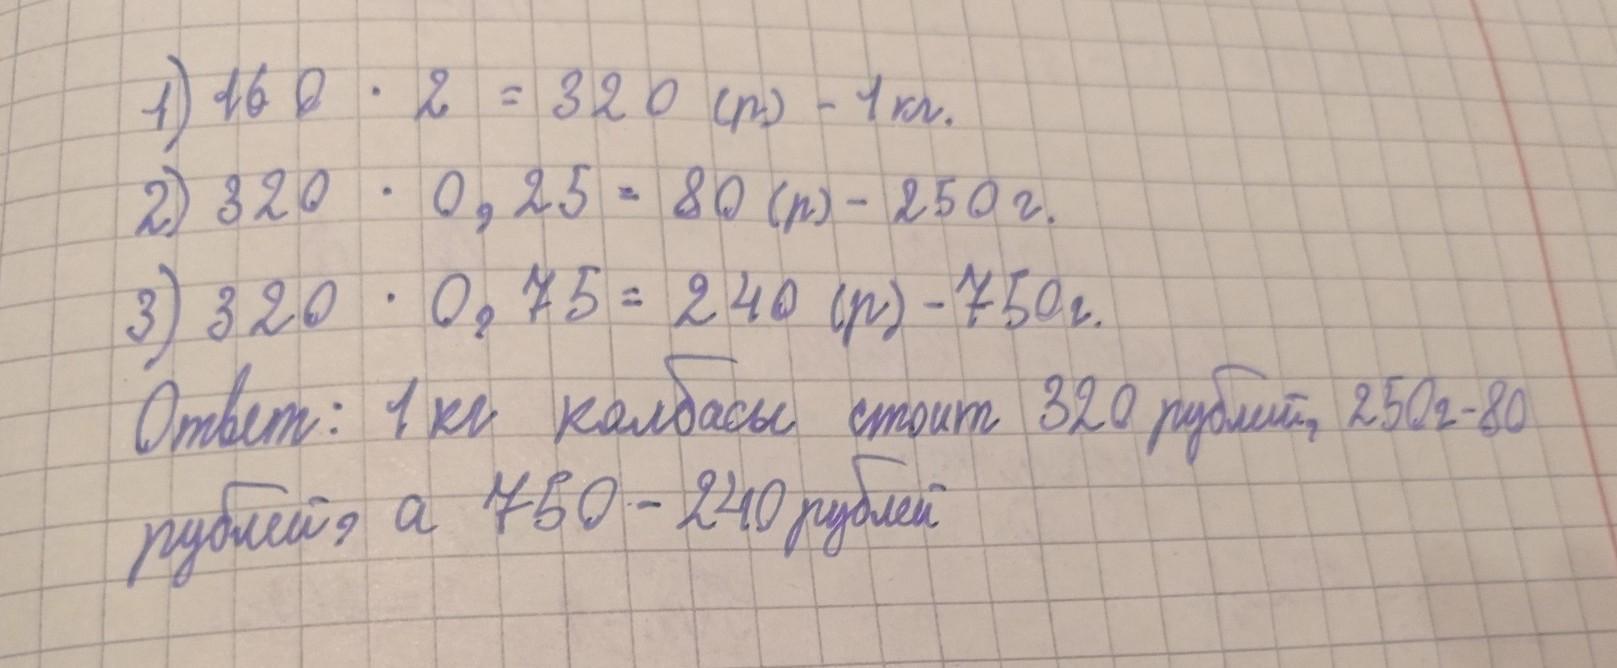 1) 160 · 2 = 320 (р) - 1 кг.
2) 320 · 0,25 = 80 (р) - 250 г.
3) 320 · 0,75 = 240 (р) - 750 г.
Ответ: 1 кг колбасы стоит 320 рублей, 250г-80
рублей, а 750 - 240 рублей